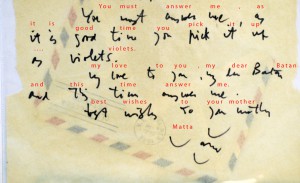 You must answer me, as
You must answer me, as
it is good time you pick it up
it is good time you pick it up
as violets.
as violets.
my love to you, my dear Batan
my love to you, my dear Batan
and this time answer me.
and this time answer me.
best wishes to your mother
best wishes to your mother
Matta